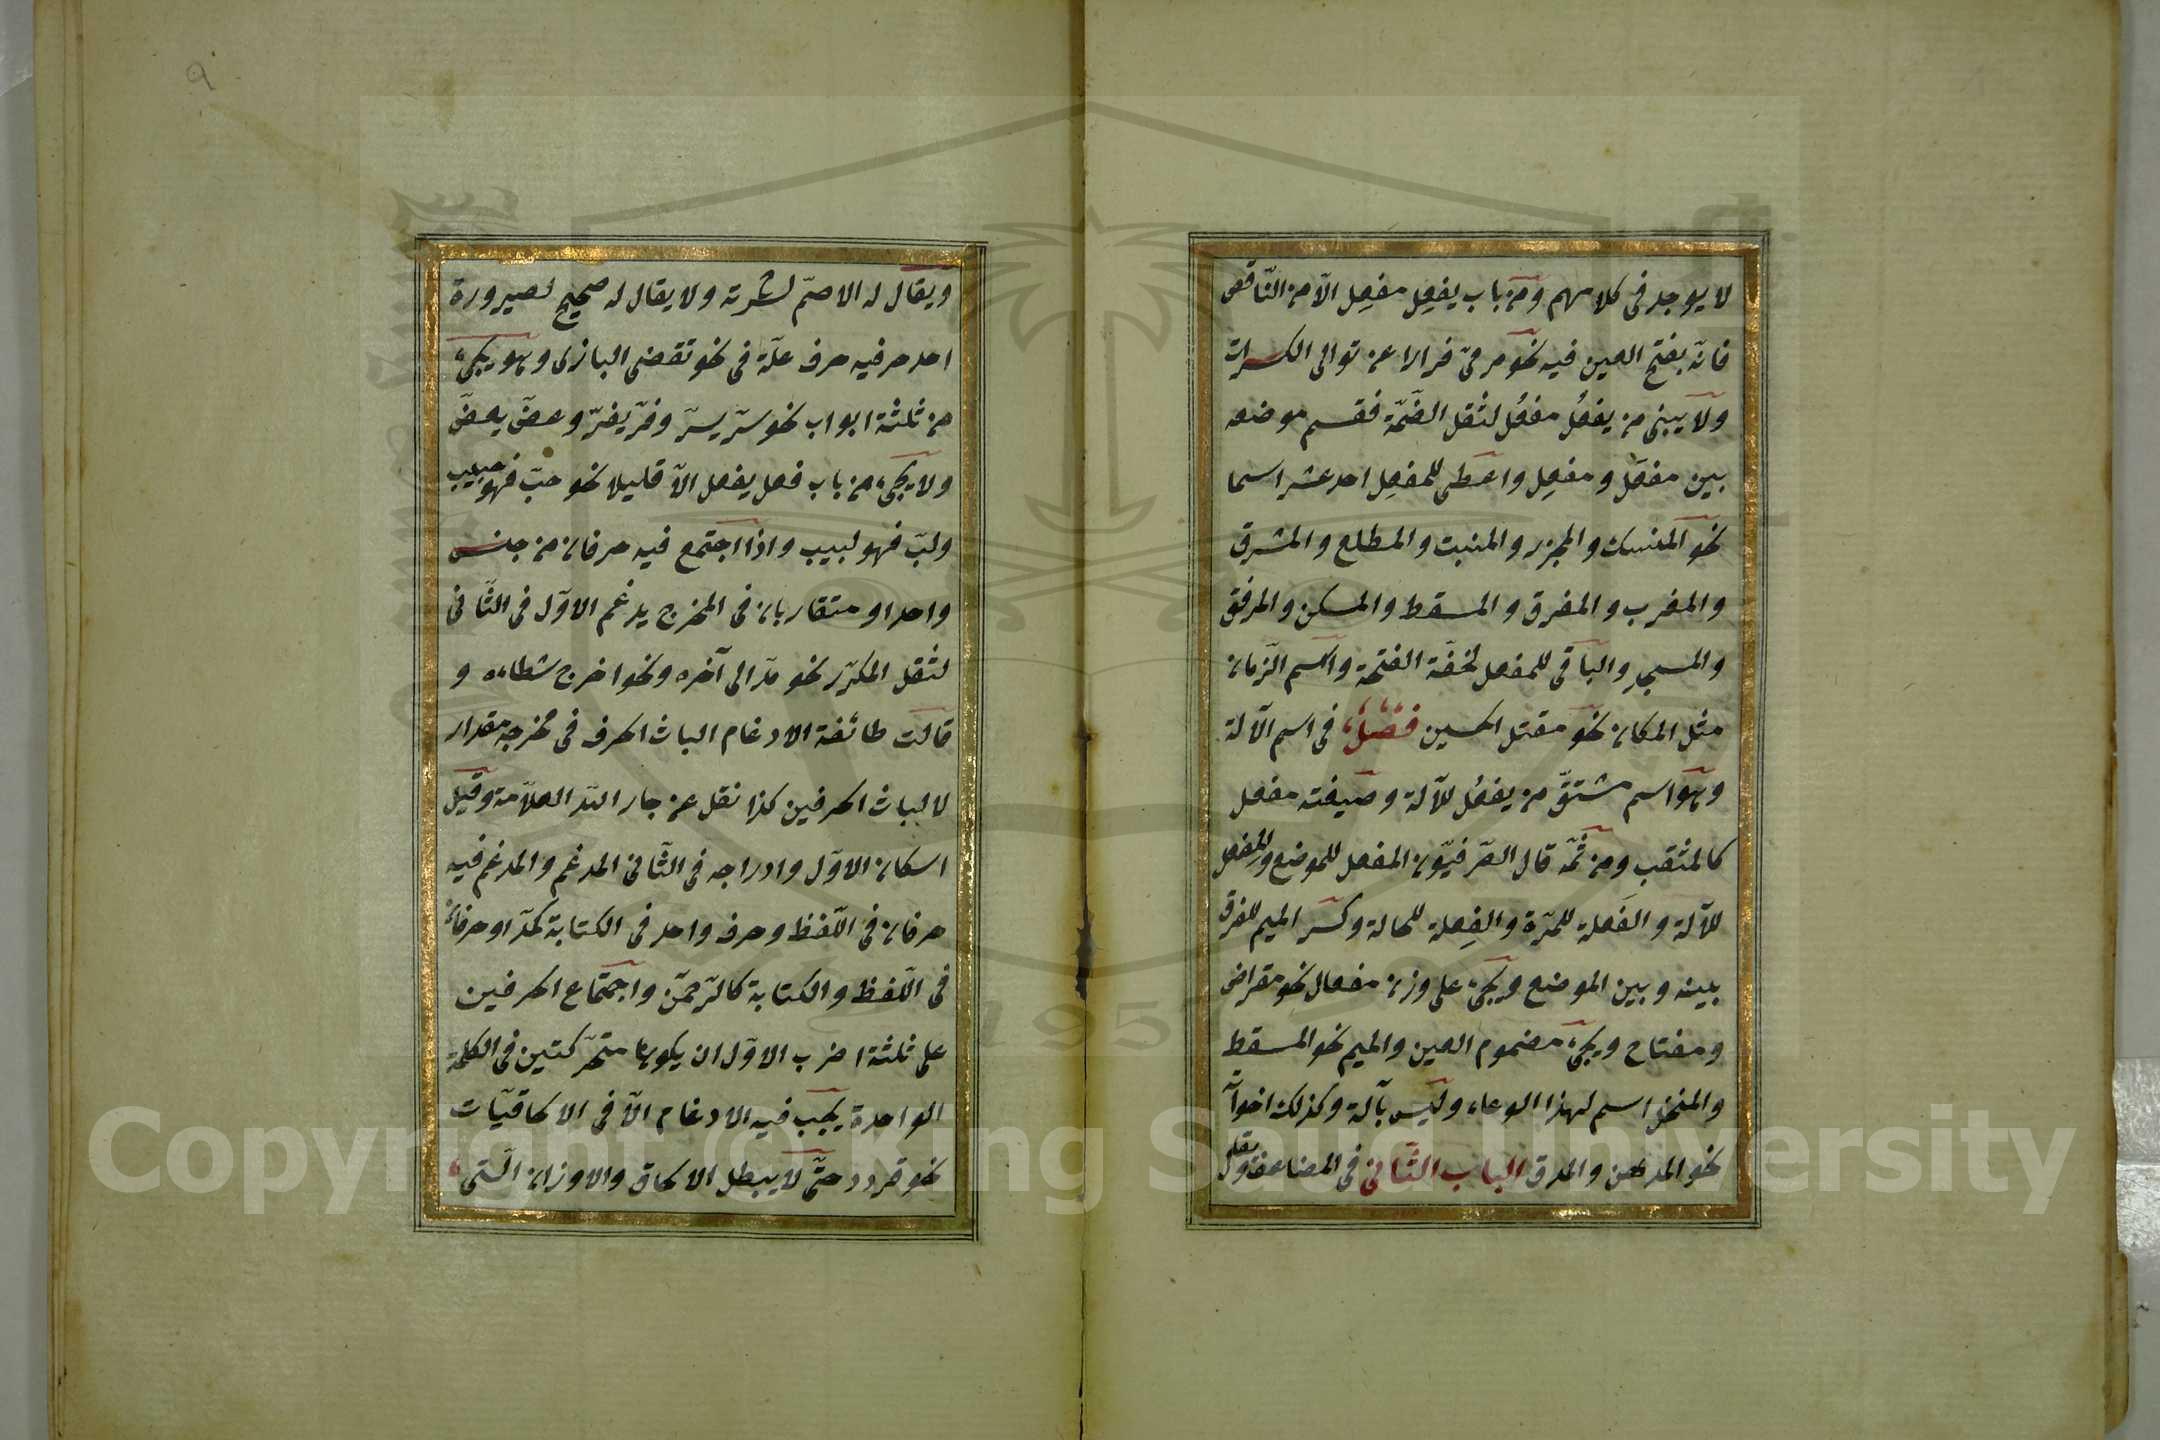 لا يوجد فى كلامهم ومن باب يفعِل مفعِل الّا من النّاقص
فانّه بفتح العين فيه نحو مرمىً فرارا عن توالى الكسرات
ولا يبنى من يفعُل مفعُل لثقل الضّمّة فقسم موضعه
بين مفعَل و مفعِل واعطى للمفعِل احد عشر اسما
نحو المنسك والمجزر والمنبت والمطلع والمشرق
والمغرب والمفرق والمسقط والمسكن والمرفق
والمسجد والباقى للمفعل لخفّة الفتحة واسم الزّمان
مثل المكان نحو مقتل الحسين فصل فى اسم الآلة
وهو اسم مشتقّ من يفعُل للآلة وصيغته مفعل
كالمثقب ومن ثمّه قال الصّرفيّون المفعل للموضع والمِفعل
للآلة والفَعلة للمرّة والفِعلة للحالة وكسر الميم للفرق
بينه وبين الموضع ويجىء على وزن مفعال نحو مقراض
ومفتاح ويجىء مضموم العين والميم نحو المسقط
والمنخل اسم لهذا الوعاء وليس بآلة وكذلك اخواته
نحو المدهن والمدق الباب الثّانى فى المضاعف ويقال
ويقال له الاصمّ لشدّته ولا يقال له صحيح لصيرورة
احد حرفيه حرف علّة فى نحو تقضى البازى وهو يجىء
من ثلثة ابواب نحو سرّ يسرّ وفرّ يفرّ وعضّ يعضّ
ولا يجىء من باب فعل يفعل الّا قليلا نحو حبّ فهو حبيب
ولبّ فهو لبيب واذا اجتمع فيه حرفان من جنس
واحد او متقاربان فى المخرج يدغم الاوّل فى الثّانى
لثقل المكرّر نحو مدّ الى آخره ونحو اخرج شطاءه و
قالت طائفة الادغام الباث الحرف فى مخرجه مقدار
الباث الحرفين كذا نقل عن جار اللّه العلّامة وقيل
اسكان الاوّل وادراجه فى الثّانى المدغم والمدغم فيه
حرفان فى اللّفظ وحرف واحد فى الكتابة كمدّ او حرفان
فى اللّفظ والكتابة كالرّحمن واجتماع الحرفين
على ثلثة اضرب الاوّل ان يكونا متحرّكتين فى الكلمة
الواحدة يجب فيه الادغام الّا فى الالحاقيّات
نحو قردد حتّى لا يبطل الالحاق والاوزان الّتى
٩
Copyright © King Saud University
1957